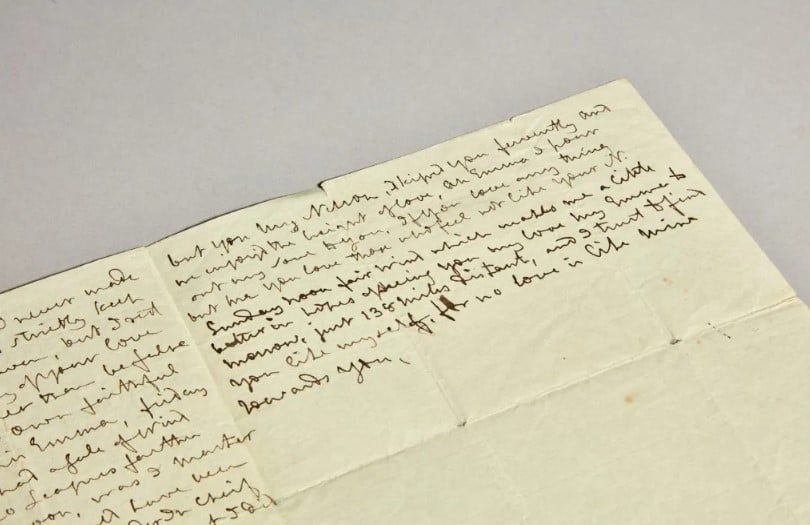 never made
strictly keep
but I
of your love
than be false
own faithful
Emma, friday
had a gale of wind
leagues farther
was I master
have been
Chief
I did
but you my Nelson, I kissd you fervently and
we enjoyd the height of love, Ah Emma I pour
out my soul to you. If you love any thing
but me you love those who feel not like your N.
Sunday noon fair wind which makes me a little
better in hopes of seeing you my love my Emma to
morrow, just 138 miles distant, and I trust to find
you like myself, for no love is like mine
towards you,